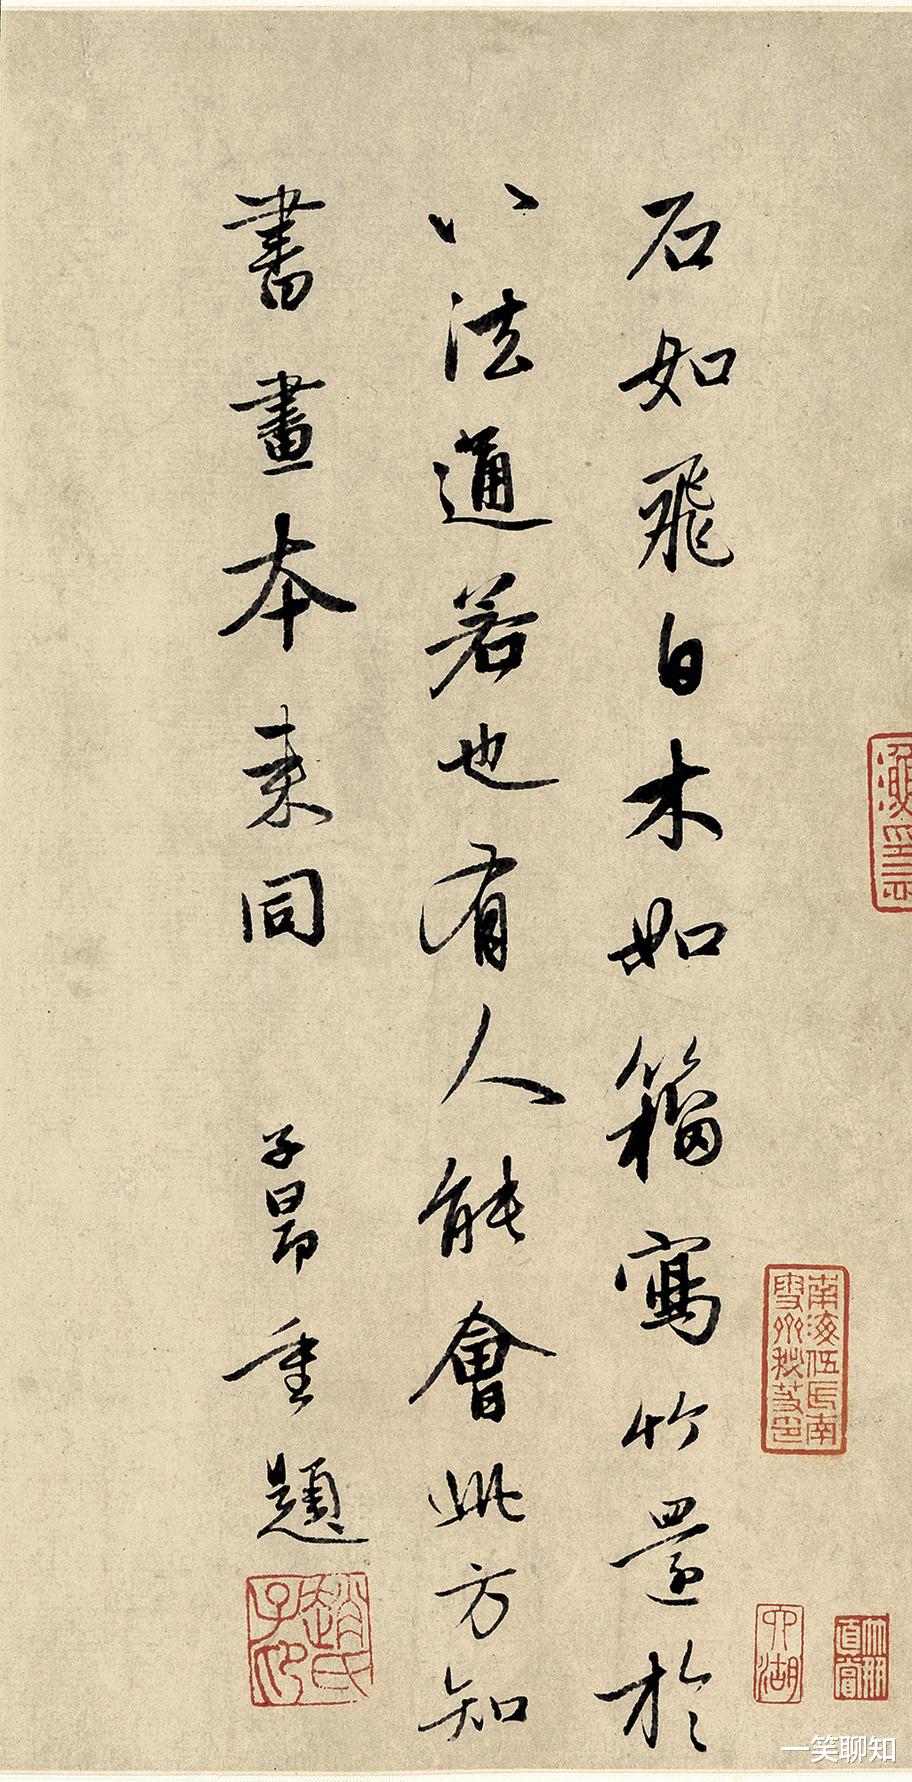 石如飛白木如籀寫竹還於
八法通若也有人能會此方知
書畫本来同 子昂重題
趙氏子昂
南海伍氏南雪齋秘笈印
六湖
一笑聊知